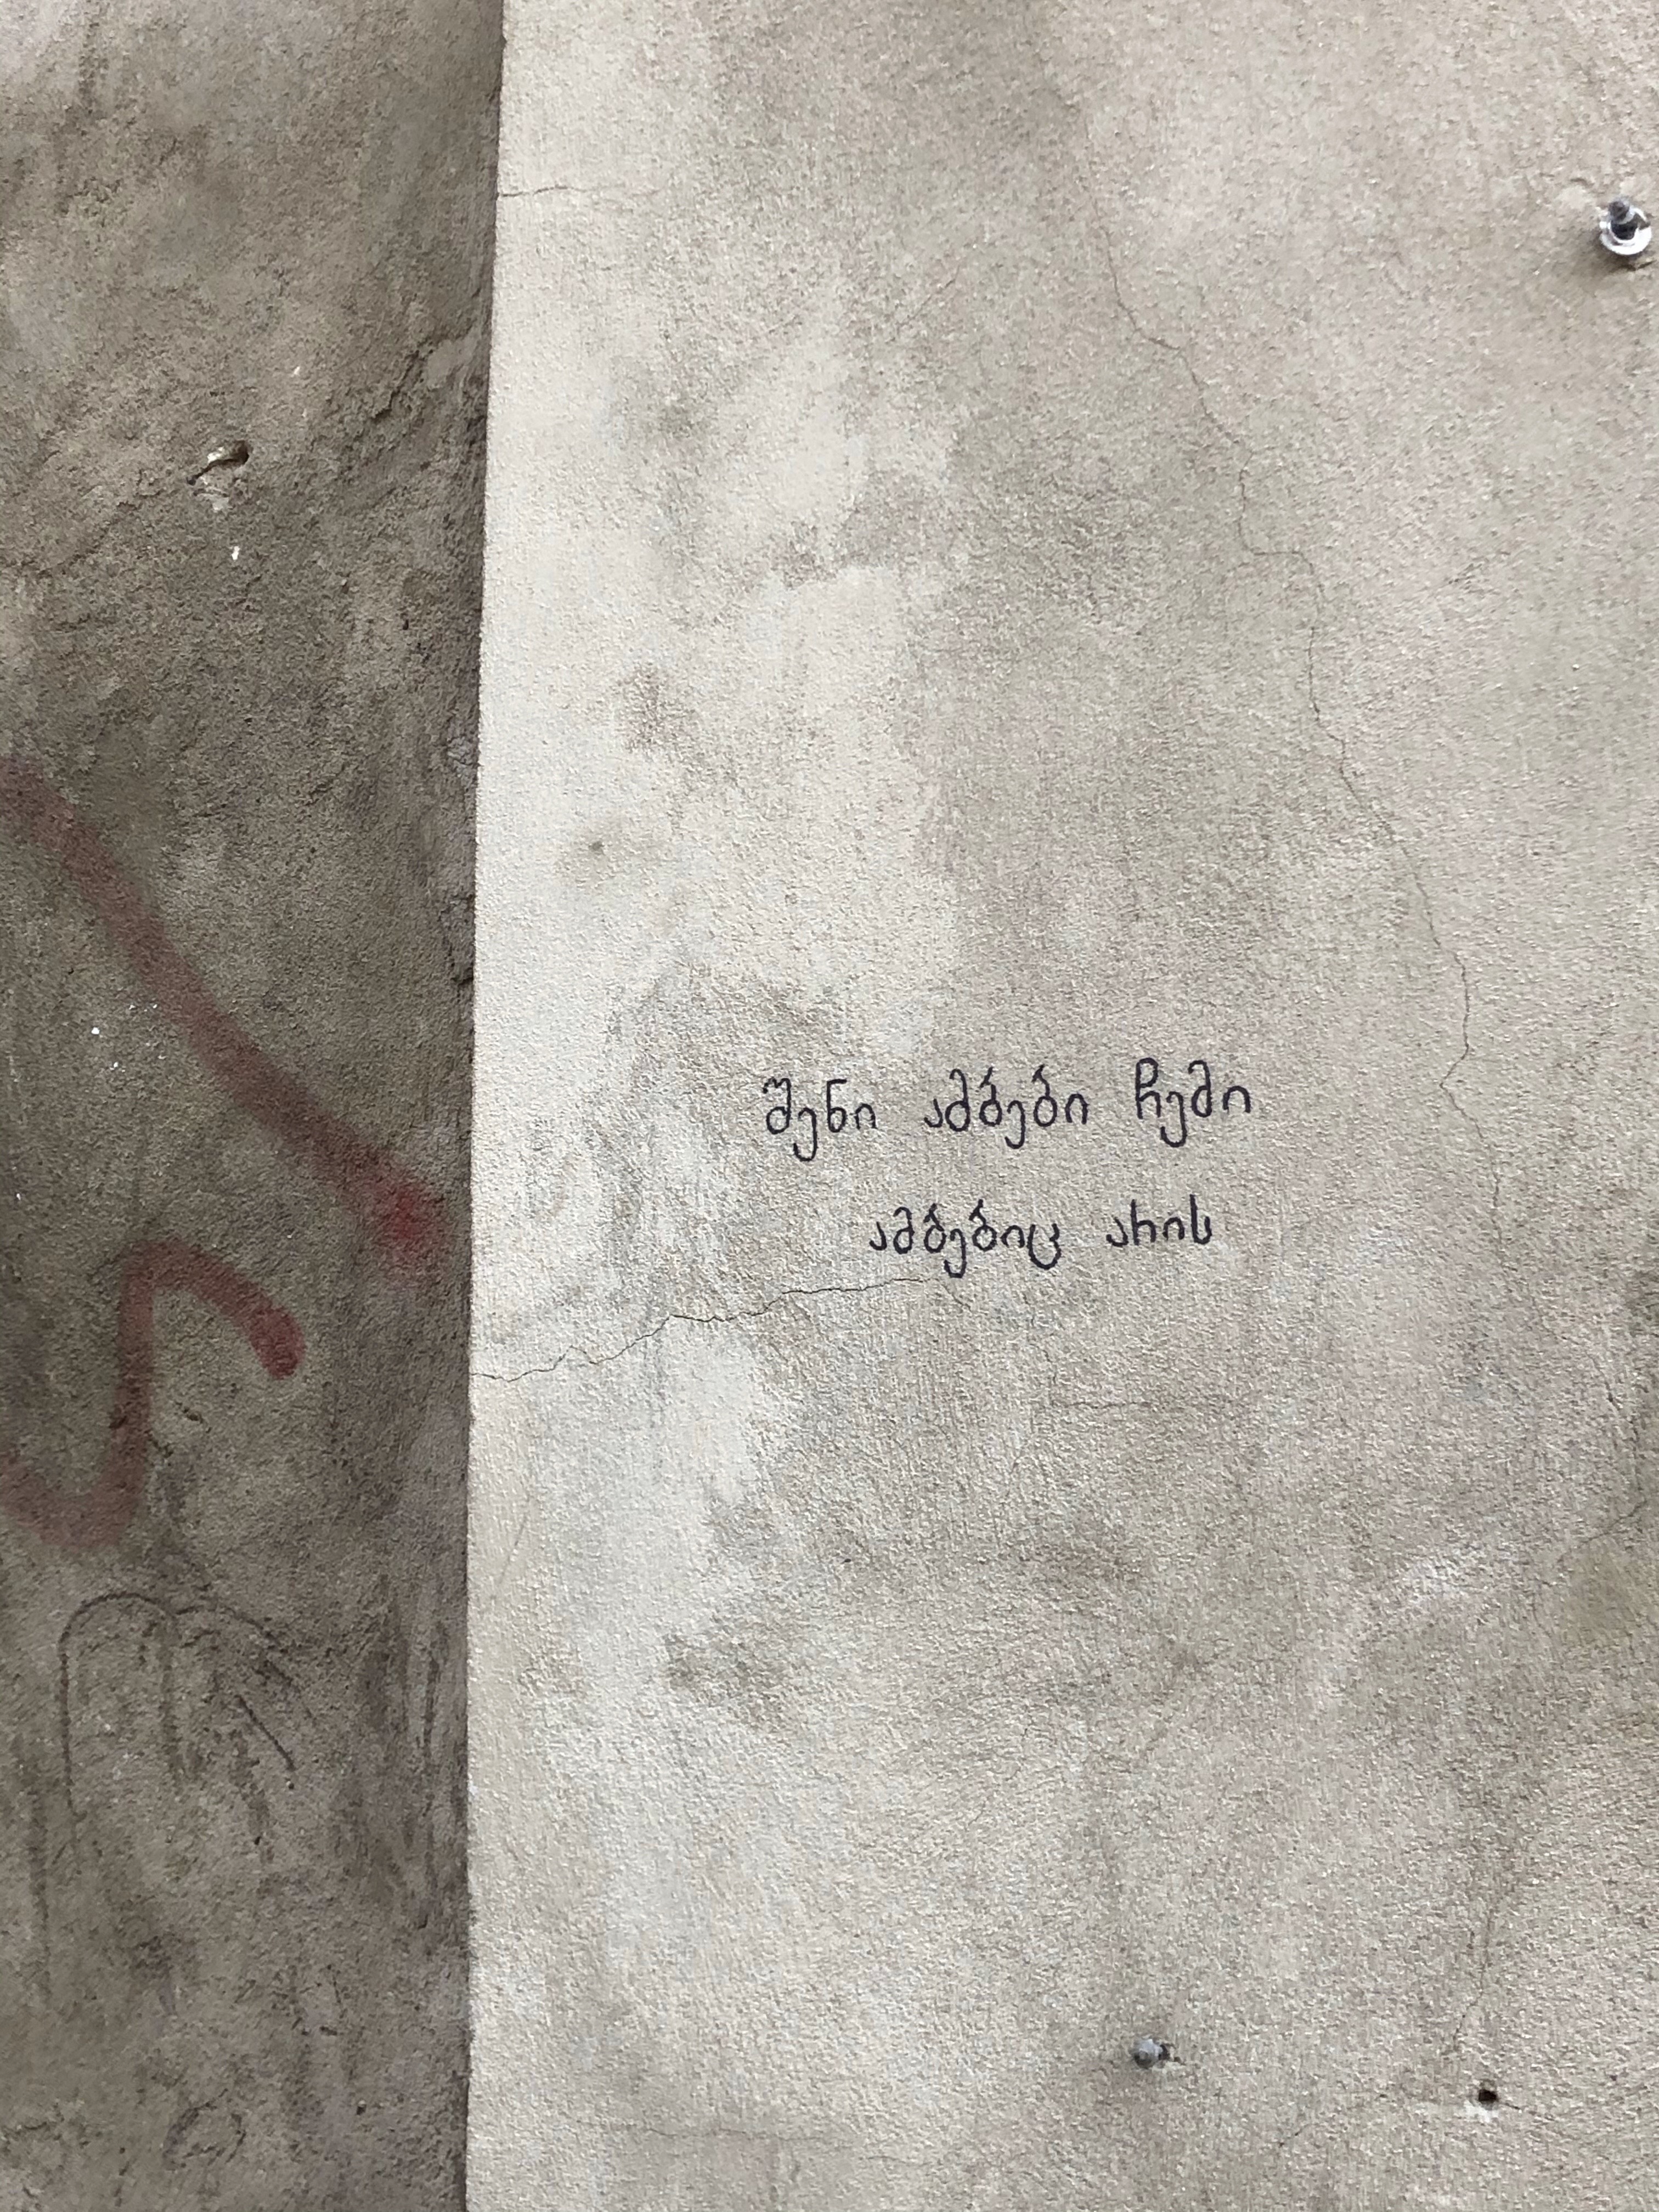 შენი ამბები ჩემი
ამბებიც არის